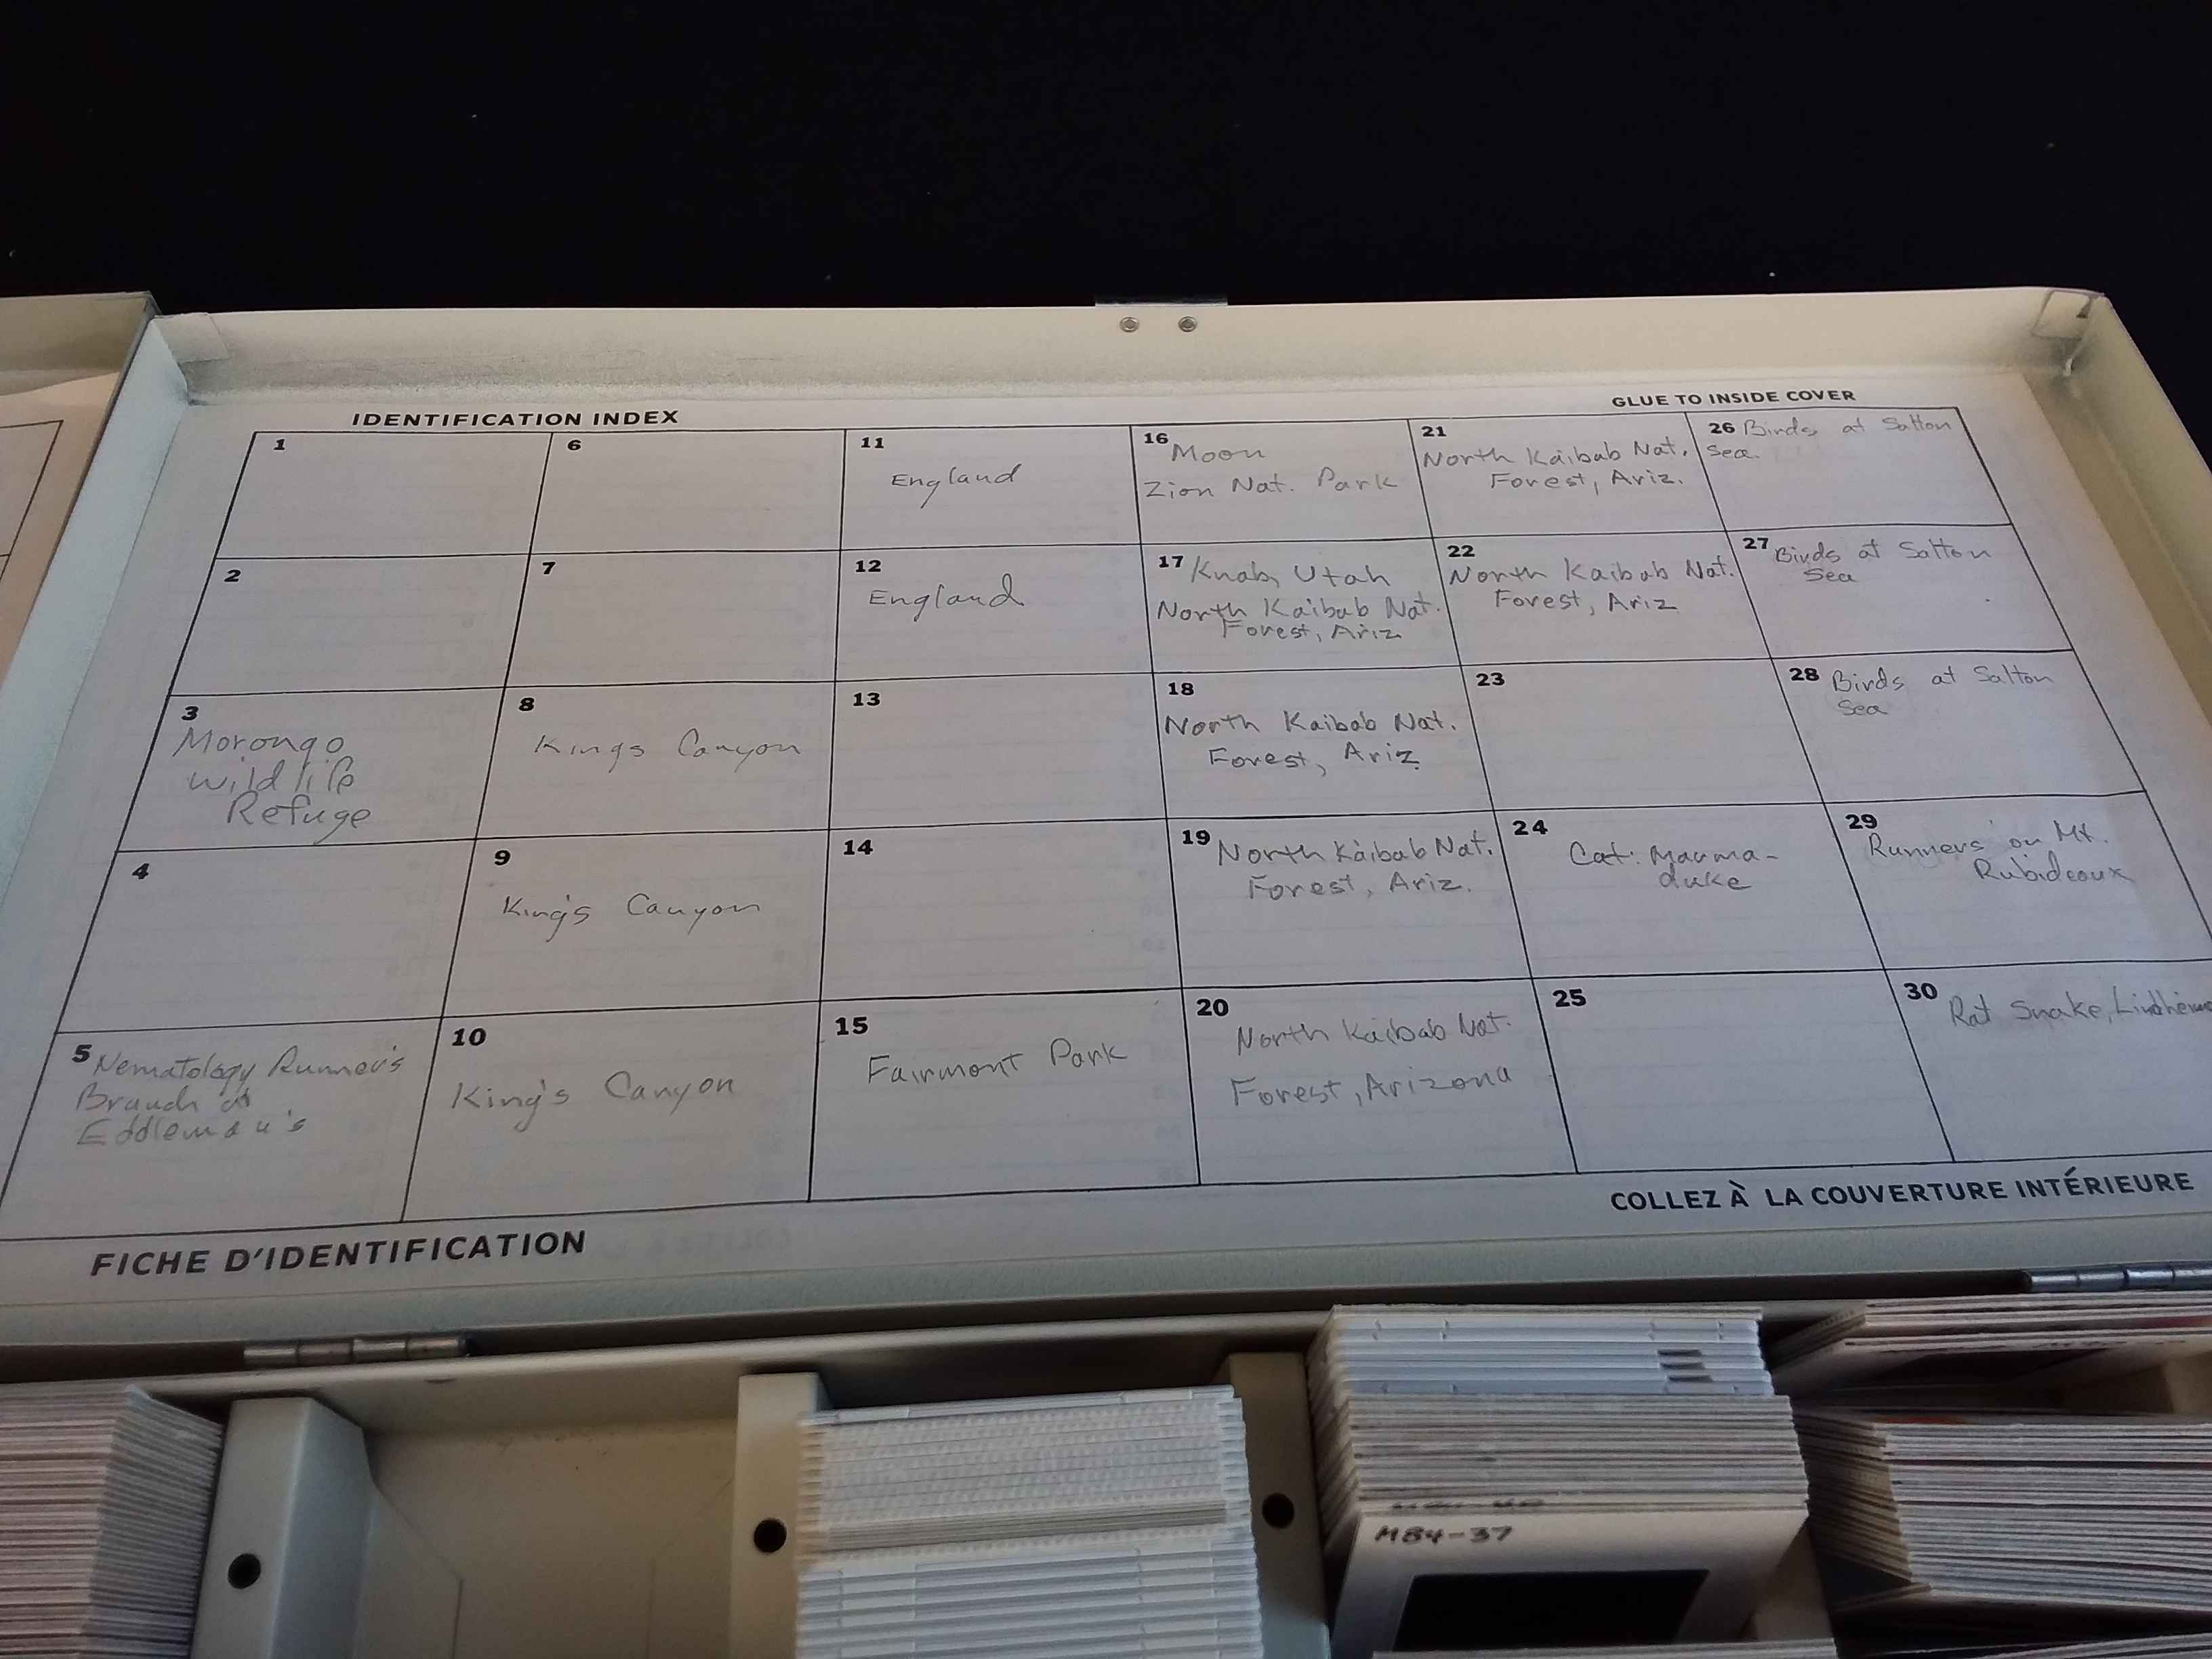 IDENTIFICATION INDEX
GLUE TO INSIDE COVER
1
2
3
Morongo
Wildlife
Refuge
4
5 Nematology Runner's
Branch at
Eddleman's
6
7
8
Kings Canyon
9
King's Canyon
10
King's Canyon
11
England
12
England
13
14
15
Fairmont Park
16 Moon
Zion Nat. Park
17 Knab, Utah
North Kaibab Nat.
Forest, Ariz
18
North Kaibab Nat.
Forest, Ariz.
19 North Kaibab Nat.
Forest, Ariz.
20
North Kaibab Nat.
Forest, Arizona
21
North Kaibab Nat.
Forest, Ariz.
22
North Kaibab Nat.
Forest, Ariz
23
24
Cat: Mauma-
duke
25
26 Birds at Salton
Sea.
27 Birds at Salton
Sea
28 Birds at Salton
Sea
29
Runners on Mt.
Rubideoux
30 Rat Snake,
FICHE D'IDENTIFICATION
COLLEZ À LA COUVERTURE INTÉRIEURE
M84-37